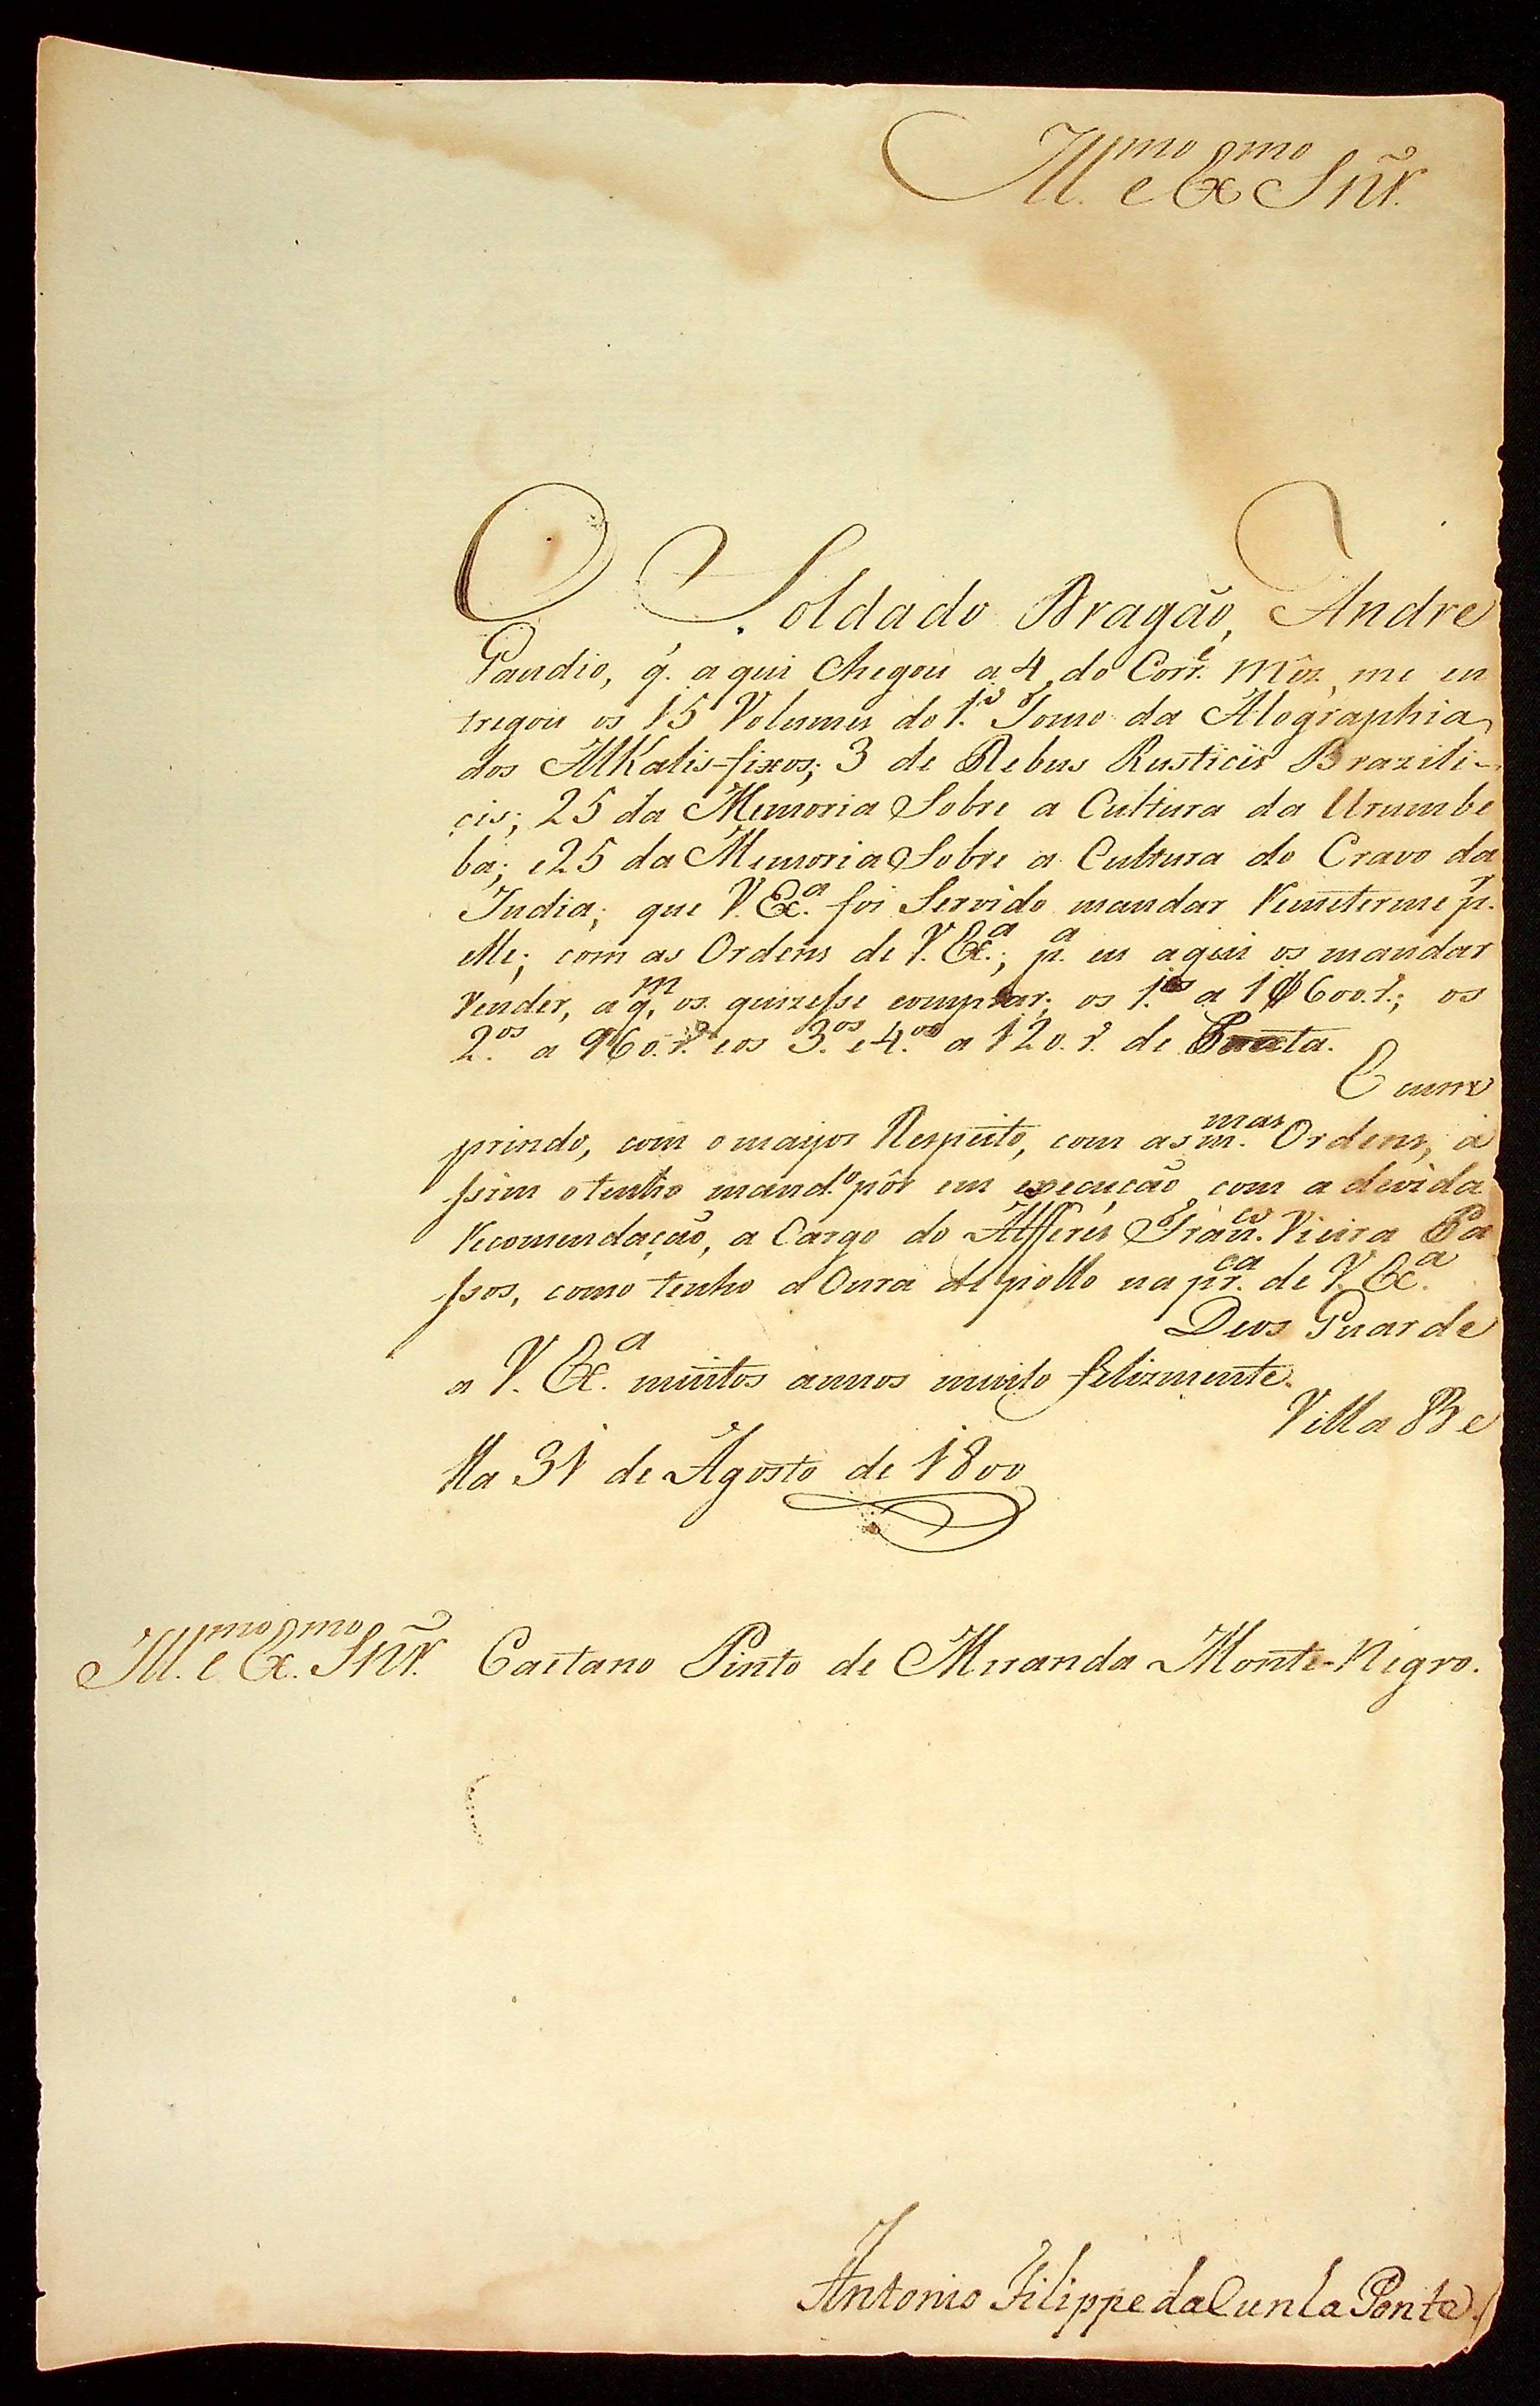 Ill.mo e Ex.mo Sñr.
O Soldado Dragão, Andre
Gaudio, q̃. aqui chegou a 4 do Corr.e Mêz, me en
tregou os 15 Volumes do 1.o Tomo da Alographia
dos Alkalis-fixos; 3 de Rebus Rusticis Brazili-
cis; 25 da Memoria Sobre a Cultura da Urumbe
ba; e 25 da Memoria Sobre a Cultura do Cravo da
India; que V. Ex.a foi Servido mandar remeterme p.r
elle; com as Ordens de V. Ex.a; p.a eu aqui os mandar
vender, a q.m os quizesse comprar; os 1.os a 1$600 r.s; os
2.os a 960 r.s e os 3.os e 4.os a 120 r.s de Prata.
E cum
prindo, com o mayor Respeito, com as m.mas Ordens, a
ssim o tenho mand.o pôr em execução, com a devida
recomendação, a Cargo do Alfferes Fran.co Vieira Pa
ssos, como tenho a Onra de pollo na pr.ca de V. Ex.a
Deos Guarde
a V. Ex.a muitos annos muito felizmente.
Villa Be
lla 31 de Agosto de 1800
Ill.mo e Ex.mo Sñr. Caetano Pinto de Miranda Monte-Negro.
Antonio Filippe da Cunha Ponte.